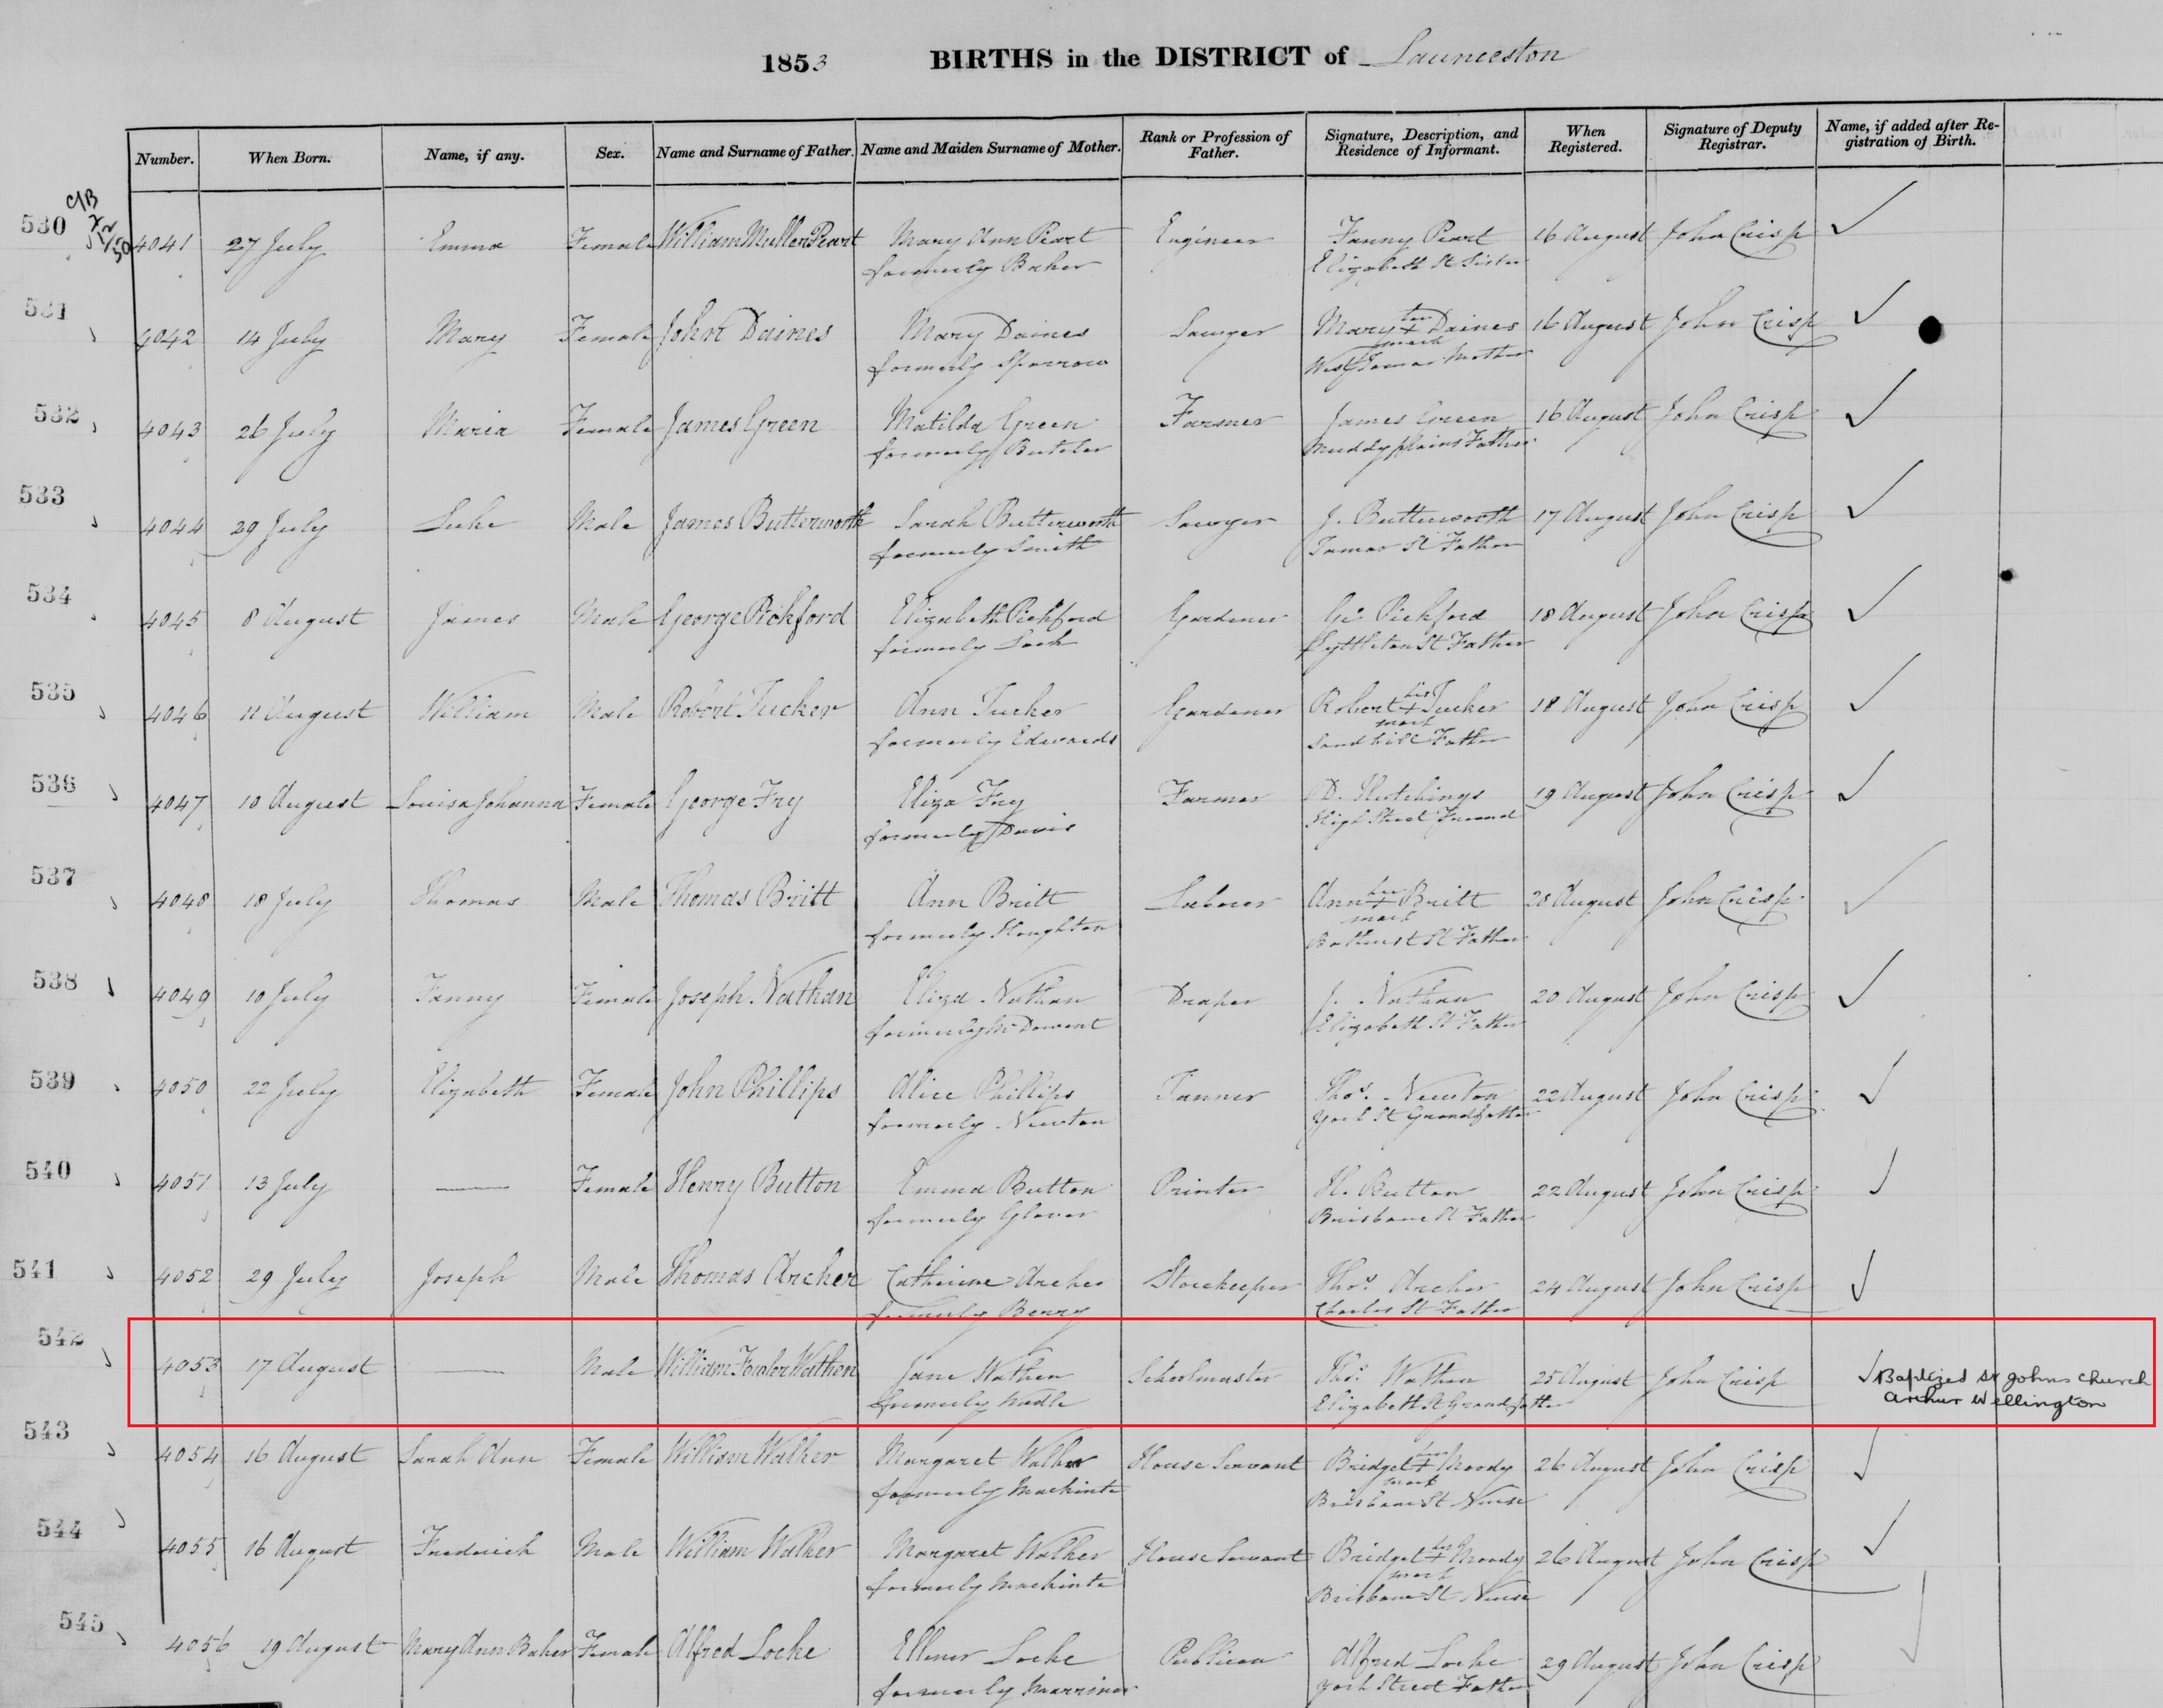 1853 BIRTHS in the DISTRICT of Launceston
Number. When Born. Name, if any. Sex. Name and Surname of Father. Name and Maiden Surname of Mother. Rank or Profession of Father. Signature, Description, and Residence of Informant. When Registered. Signature of Deputy Registrar. Name, if added after Registration of Birth.
530 4041 27 July Emma Female William Mullen Peart Mary Ann Peart Engineer Fanny Peart 16 August John Crisp
formerly Baker Elizabeth St Sister
531 4042 14 July Mary Female John Daines Mary Daines Sawyer Mary her + Daines 16 August John Crisp
mark
formerly Sparrow West Tamar Mother
532 4043 26 July Maria Female James Green Matilda Green Farmer James Green 16 August John Crisp
formerly Butcler Muddy plains Father
533 4044 29 July Luke Male James Butterworth Sarah Butterworth Sawyer J. Butterworth 17 August John Crisp
formerly Smith Tamar St Father
534 4045 8 August James Male George Pickford Elizabeth Pickford Gardener Ge Pickford 18 August John Crisp
formerly Lyttleton St Father
535 4046 11 August William Male Robert Tucker Ann Tucker Gardener Robert his + Tucker 18 August John Crisp
mark
formerly Edwards Sandhill Father
536 4047 10 August Louisa Johanna Female George Fry Eliza Fry Farmer D. Hutchings 19 August John Crisp
formerly Davis High Street Friend
537 4048 18 July Thomas Male Thomas Britt Ann Britt Laborer Ann her + Britt 20 August John Crisp
mark
formerly Houghton Bathurst St Father
538 4049 10 July Fanny Female Joseph Nathan Eliza Nathan Draper J. Nathan 20 August John Crisp
formerly Elizabeth St Father
539 4050 22 July Elizabeth Female John Phillips Alice Phillips Tanner Thos. Newton 22 August John Crisp
formerly Newton York St Grandfather
540 4051 13 July — Female Henry Button Emma Button Printer H. Button 22 August John Crisp
formerly Glover Brisbane St Father
541 4052 29 July Joseph Male Thomas Archer Catherine Archer Storekeeper Thos. Archer 24 August John Crisp
formerly Berry Charles St Father
542 4053 17 August — Male William Fowler Wathen Jane Wathen Schoolmaster Thos. Wathen 25 August John Crisp Baptized St Johns Church
formerly Wadle Elizabeth St Grandfather Arthur Wellington
543 4054 16 August Sarah Ann Female William Walker Margaret Walker House Servant Bridget her + Moody 26 August John Crisp
mark
formerly Mackinto Brisbane St Nurse
544 4055 16 August Frederick Male William Walker Margaret Walker House Servant Bridget her + Moody 26 August John Crisp
mark
formerly Mackinto Brisbane St Nurse
545 4056 19 August Mary Ann Baker Female Alfred Locke Ellenor Locke Publican Alfred Locke 29 August John Crisp
formerly Marriner York Street Father